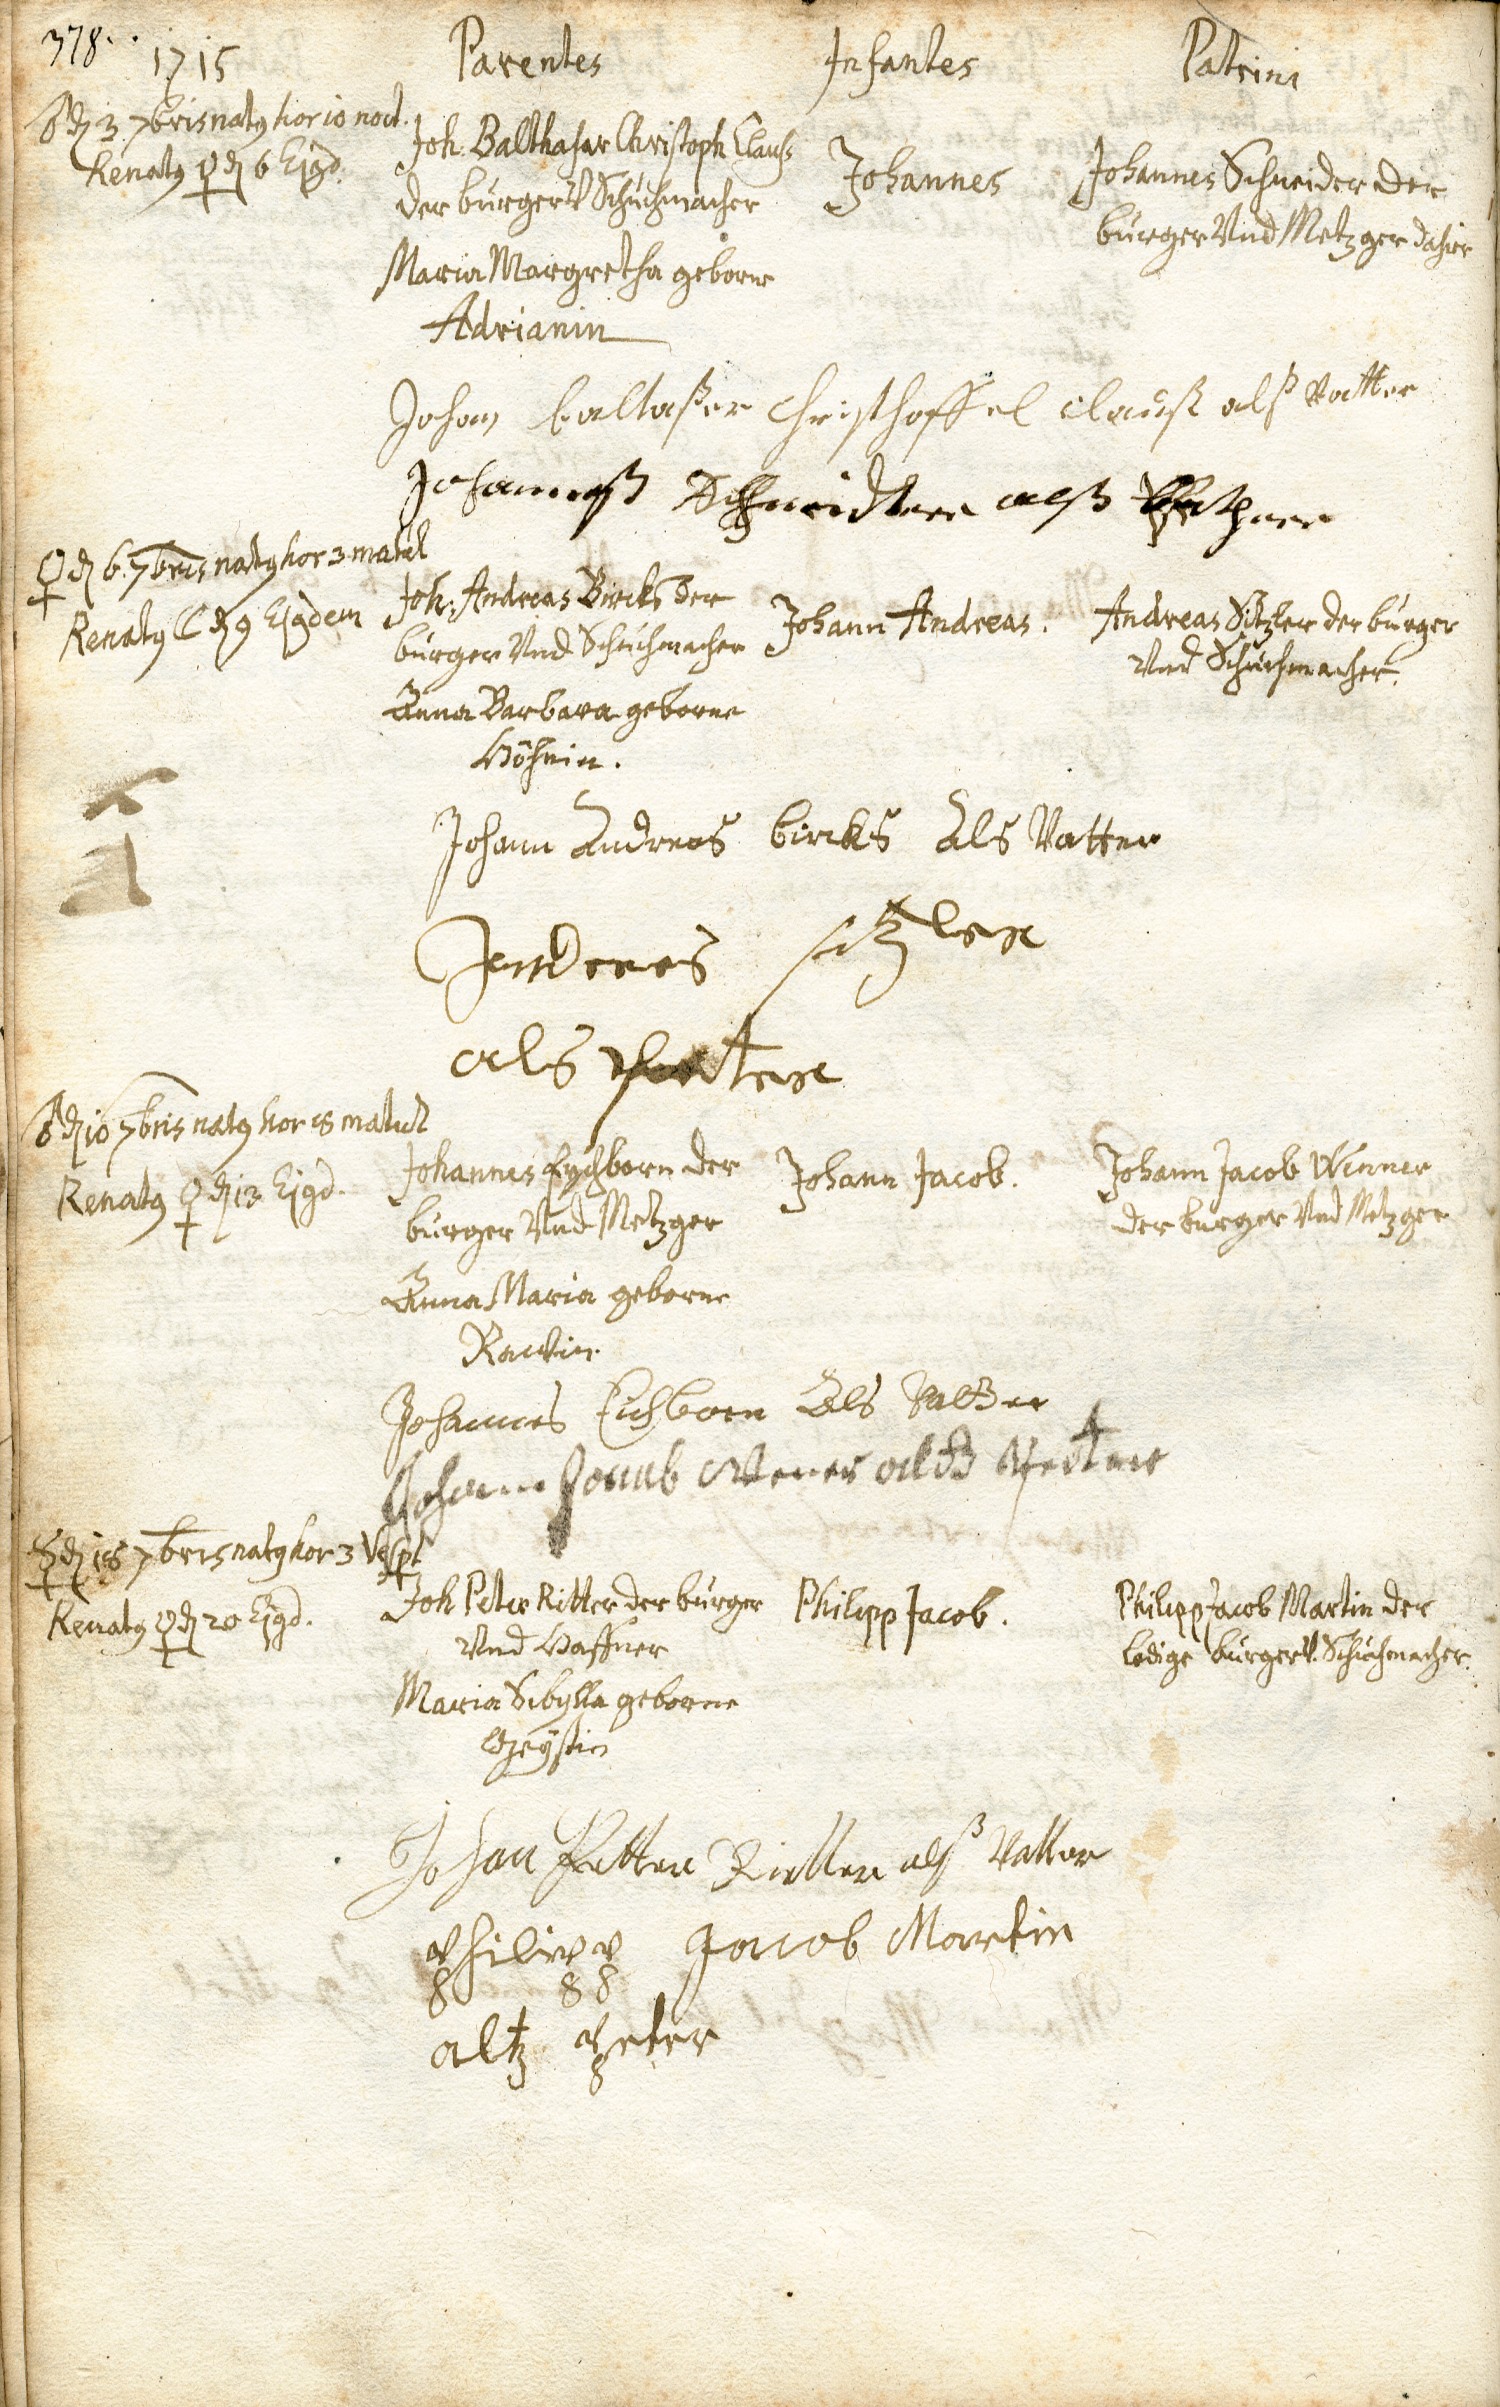 378.
1715
Parentes
Infantes
Patrini
♂ d 3. 7bris natq hor 10 noct.
Renatq ♀ d 6 Ejgd.
Joh. Balthasar Christoph Clauß
der burger V Schuhmacher
Maria Margretha geborne
Adrianin
Johannes
Johannes Schneider der
burger Vnd Metzger dahier
Johan baltaßer Christhoffel Clauß alß Vatter
Johanneß Schneidter alß
♀ d 6. 7bris natq hor 3 matut
Renatq ☾ d 9 Ejgdem
Joh. Andreas Bircks der
burger Vnd Schuhmacher
Anna Barbara geborne
Höhnin.
Johann Andreas.
Andreas Sitzler der burger
Vnd Schuhmacher.
Johann Andreas bircks Als Vatter
Andreas sitzler
als
♂ d 10 7bris natq hor 8 matut
Renatq ♀ d 13 Ejgd.
Johannes Eychborn der
burger Vnd Metzger
Anna Maria geborne
Johann Jacob.
Johann Jacob Wenner
der burger Vnd Metzger
Johannes Eichborn Als Vatter
Johann Jacob Wener alß
d 18 7bris natq hor 3 Vesp
Renatq ♀ d 20 Ejgd.
Joh Peter Ritter der burger
Vnd Haffner
Maria Sibylla geborne
Philipp Jacob.
Philipp Jacob Martin der
ledige burger V. Schuhmacher.
Johan Petter Rietter alß Vatter
Philipp Jacob Martin
altz Peter